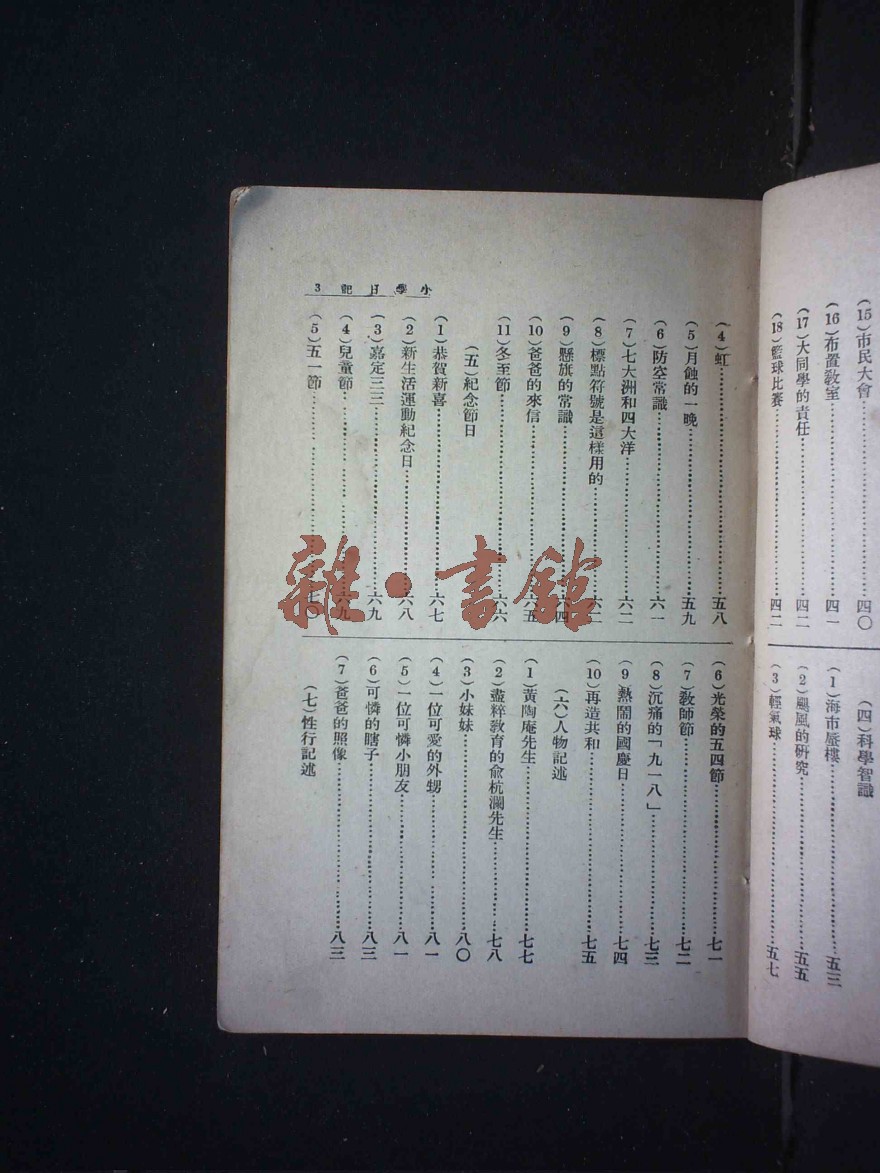 (15)市民大會……四〇
(16)布置教室……四一
(17)大同學的責任……四二
(18)籃球比賽……四二
(四)科學智識
(1)海市蜃樓……五三
(2)颶風的研究……五五
(3)輕氣球……五七
小學日記 3
(4)虹……五八
(5)月蝕的一晚……五九
(6)防空常識……六一
(7)七大洲和四大洋……六二
(8)標點符號是這樣用的……六二
(9)懸旗的常識……六四
(10)爸爸的來信……六五
(11)冬至節……六六
(五)紀念節日
(1)恭賀新喜……六七
(2)新生活運動紀念日……六八
(3)嘉定三三……六九
(4)兒童節……六九
(5)五一節……七〇
(6)光榮的五四節……七一
(7)教師節……七二
(8)沉痛的「九一八」……七三
(9)熱鬧的國慶日……七四
(10)再造共和……七五
(六)人物記述
(1)黃陶庵先生……七七
(2)盡粹教育的俞杭瀾先生……七八
(3)小妹妹……八〇
(4)一位可愛的外甥……八一
(5)一位可憐小朋友……八一
(6)可憐的瞎子……八三
(7)爸爸的照像……八三
(七)性行記述
雜·書館